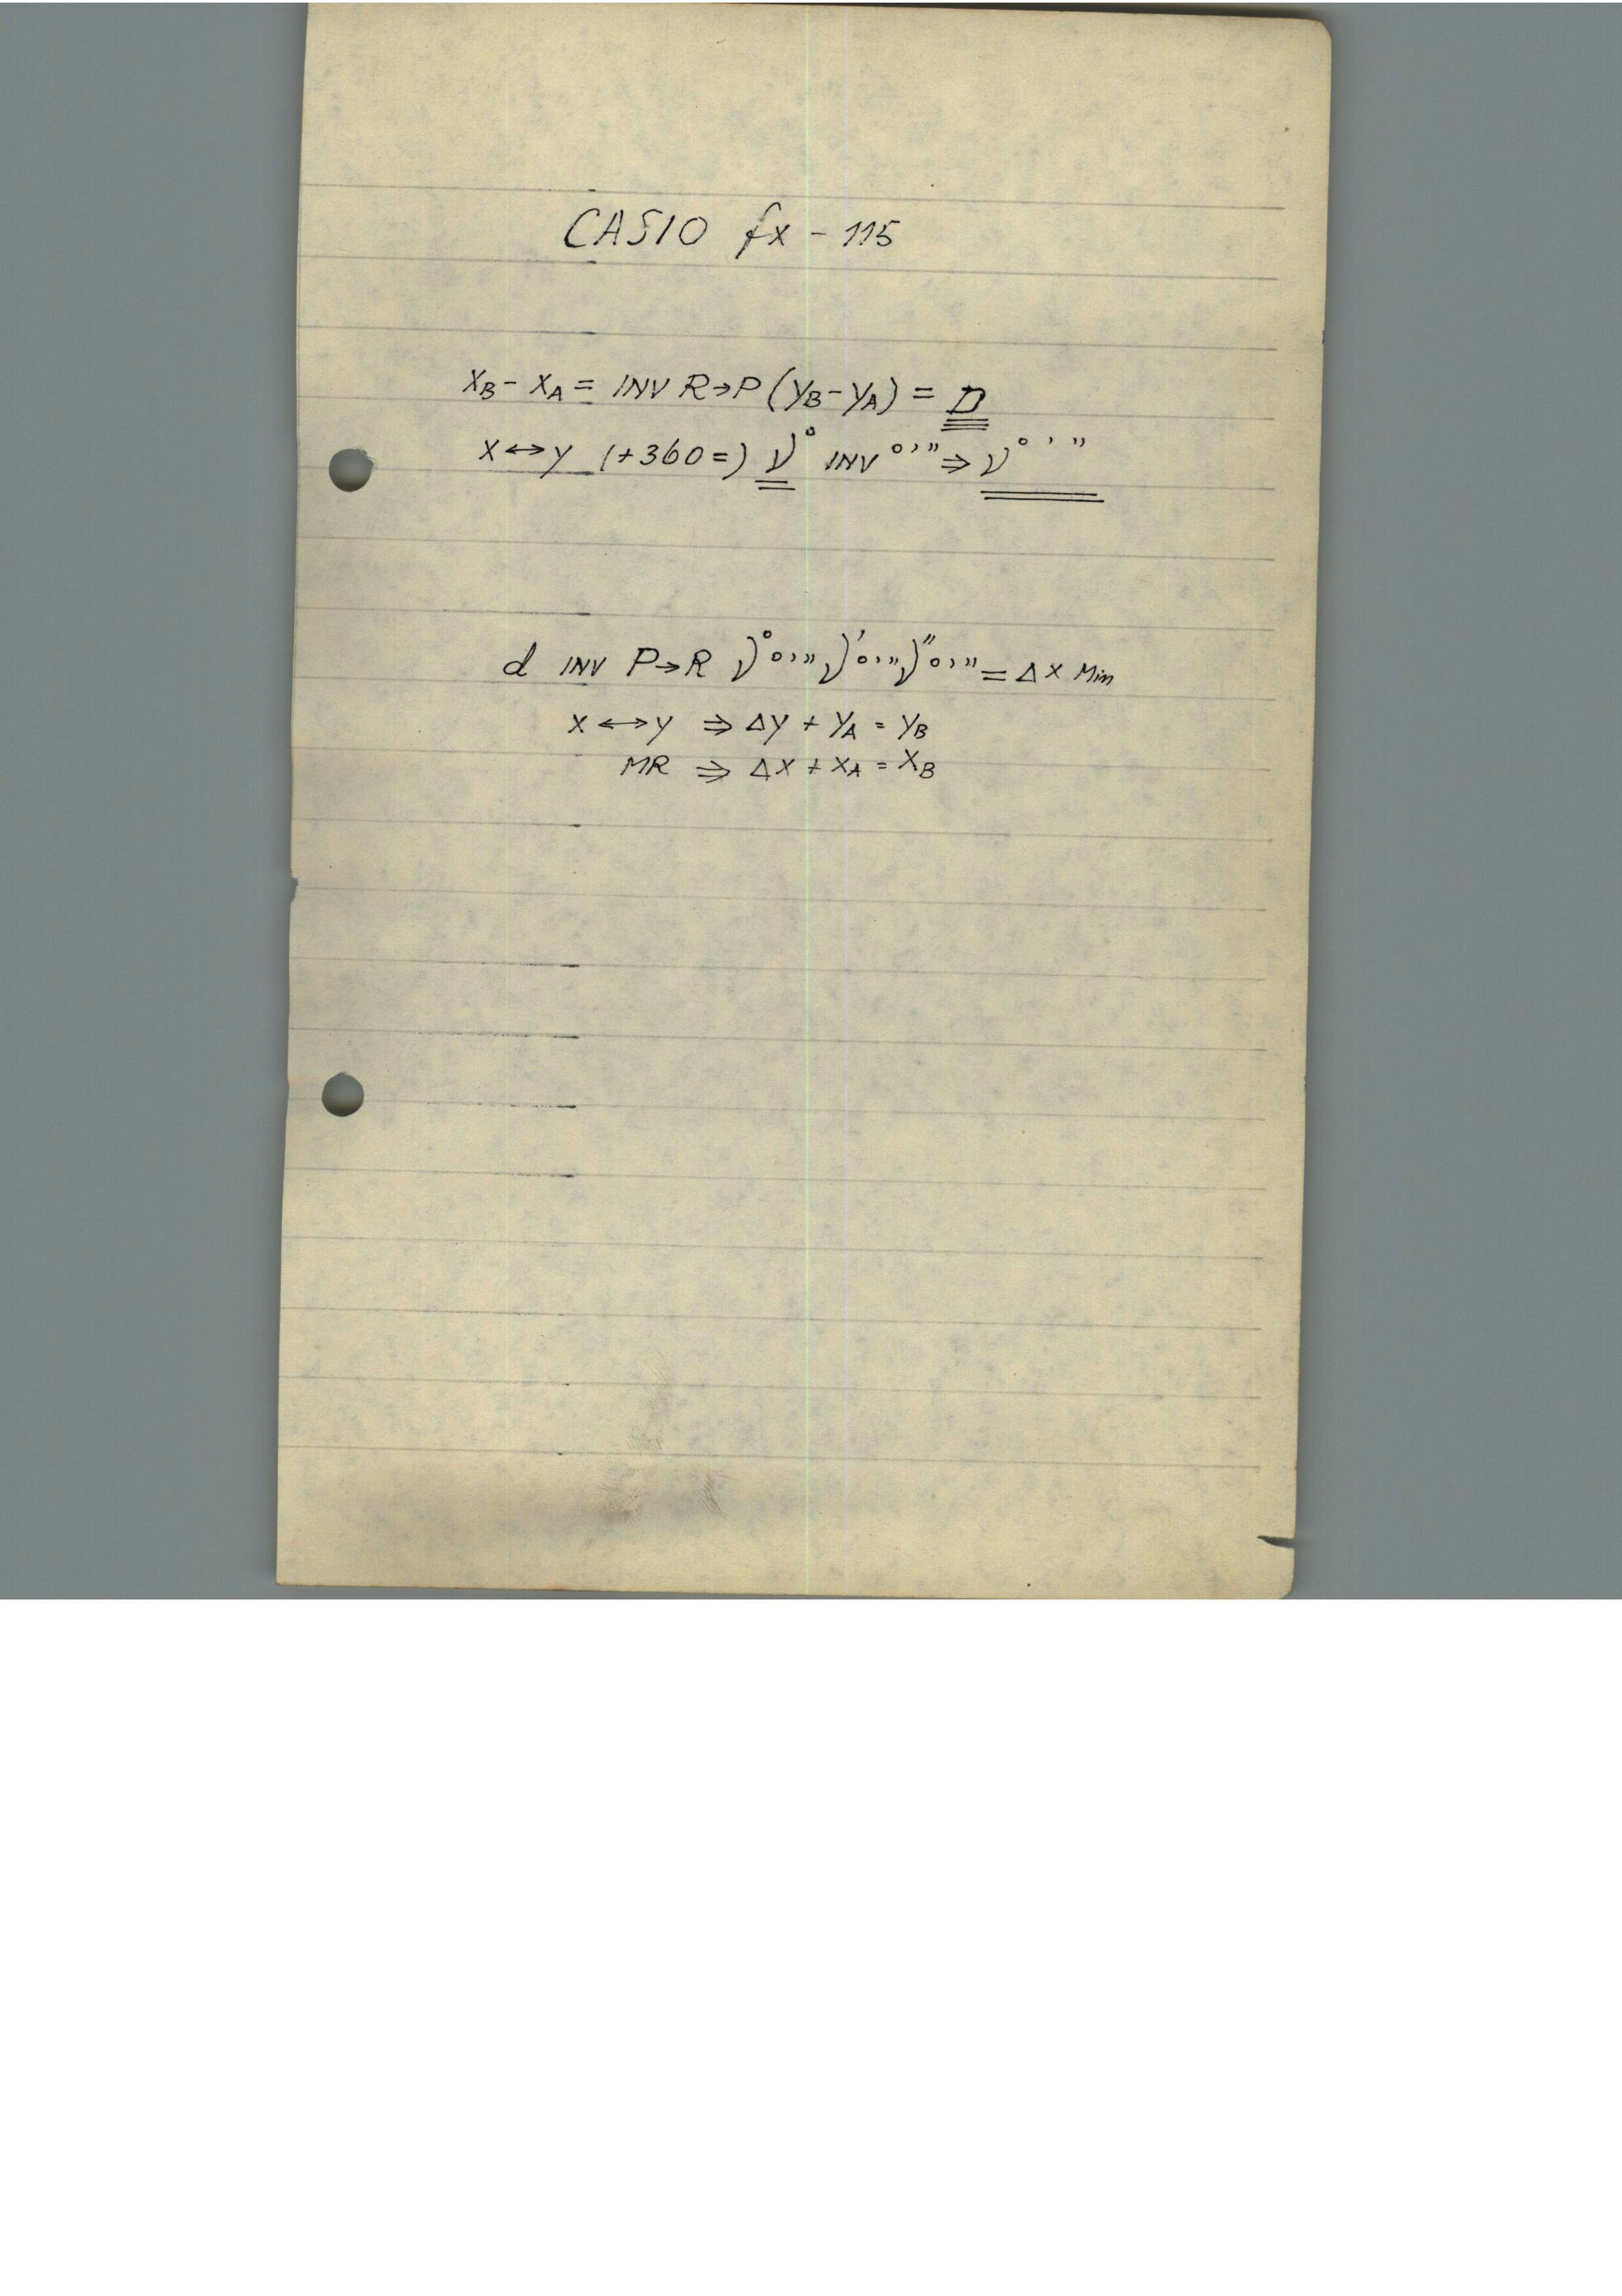 CASIO fx - 115
x_B - x_A = INV R→P (y_B - y_A) = D
x↔y (+360=) ν° INV °'" ⇒ ν° ' "
d INV P→R ν° °'" ν' °'" ν" °'" = Δx Min
x↔y ⇒ Δy + y_A = y_B
MR ⇒ Δx + x_A = x_B